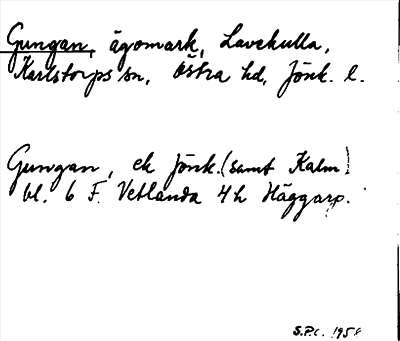 Gungan, ägomark, Lavekulla,
Karlstorps sn, Östra hd, Jönk. l.
Gungan, ek Jönk. (samt Kalm)
bl. 6 F. Vetlanda 4h Häggarp.
S.P.C. 1958